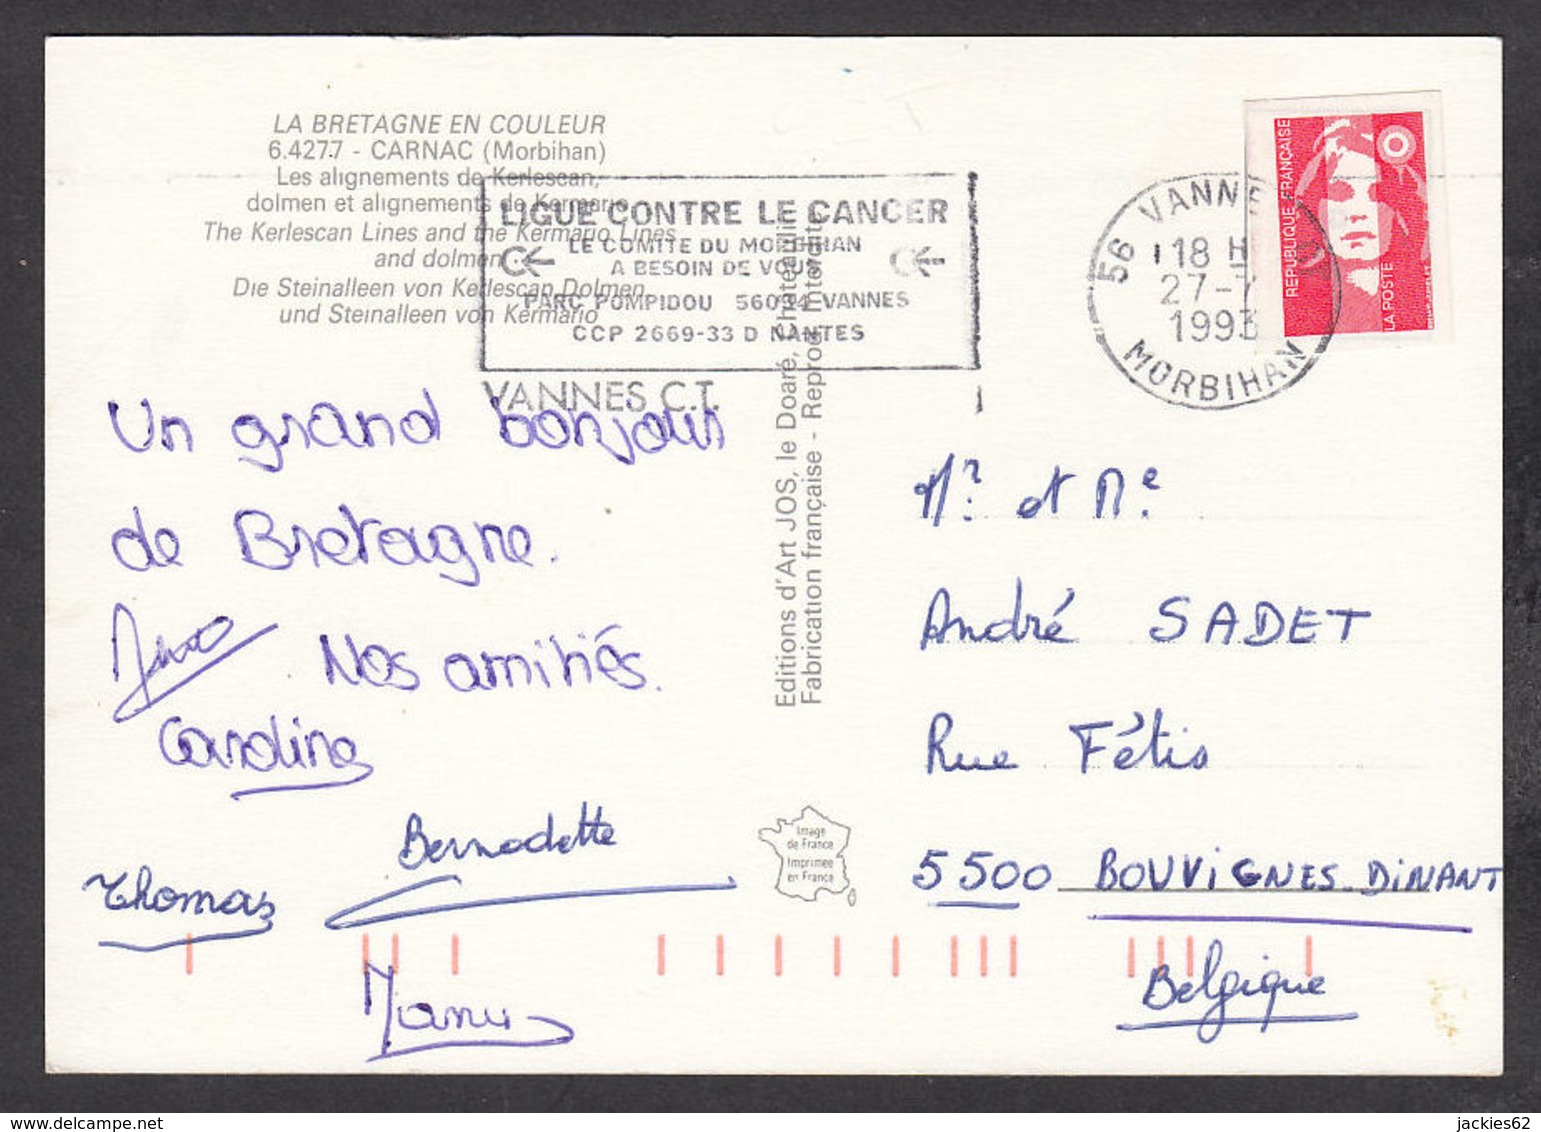 LA BRETAGNE EN COULEUR
6.4277 - CARNAC (Morbihan)
Les alignements de Kerlescan,
dolmen et alignements de Kermario
The Kerlescan Lines and the Kermario Lines
and dolmen
Die Steinalleen von Kerlescan Dolmen
und Steinalleen von Kermario
LIGUE CONTRE LE CANCER
LE COMITE DU MORBIHAN
A BESOIN DE VOUS
PARC POMPIDOU 56034 VANNES
CCP 2669-33 D NANTES
VANNES C.T.
56 VANNE
18 H
27-7
1993
MORBIHAN
REPUBLIQUE FRANÇAISE
LA POSTE
Un grand bonjour
de Bretagne.
Nos amitiés.
Caroline
Bernadette
Thomas
Manu
Editions d'Art JOS, le Doaré, Châteaulin
Fabrication française - Reprod. Interdite
Image
de France
Imprimée
en France
Mr et Me
André SADET
Rue Fétis
5500 BOUVIGNES DINANT
Belgique
jackies62